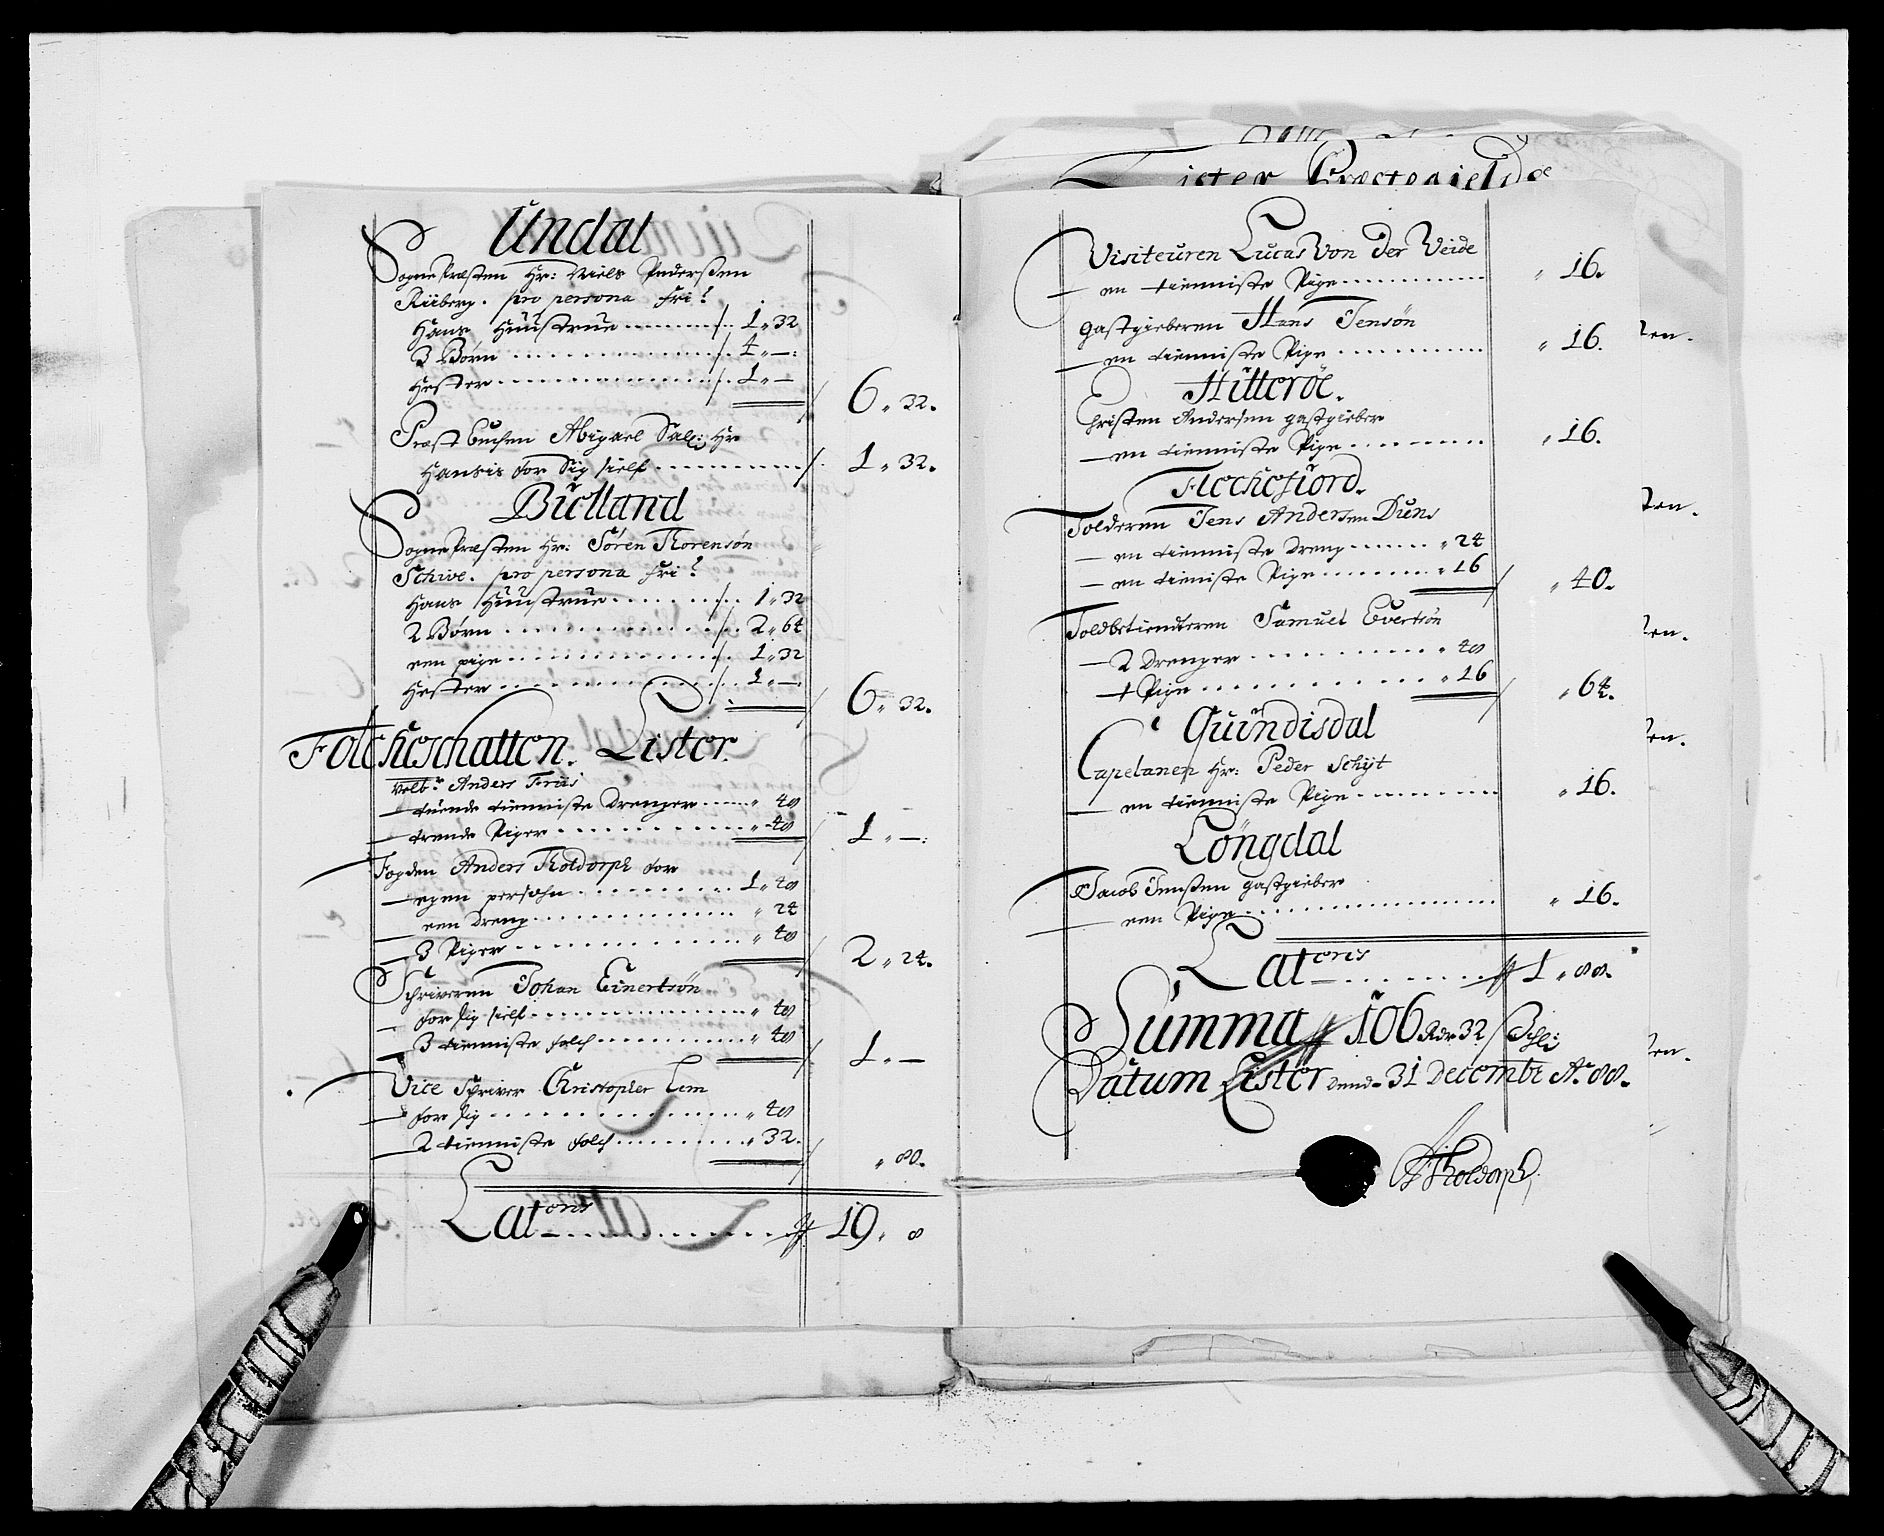 Undal
Sogne Præsten Hr: Niels Pederßen
Riiberg. pro persona fri!
Hans Hüüstrue ......... 1 „ 32
3 Børn ......... 4 „ —:
Hester ......... 1 „ — / 6 „ 32.
Præst Enchen Abigael Sal: Hr
Hansis for Sig Sielf ......... 1 „ 32.
Bielland
Sogne Præsten Hr: Sören Thorensön
Schive. pro persona fri!
Hans Hüüstrue ......... 1 „ 32
2 Børn ......... 2 „ 64
een pige ......... 1 „ 32
Hester ......... 1 „ —. / 6 „ 32.
Folcheschatten. Lister.
Velb: Anders Friis
— tuende tienniste Drenger ...... „ 48
— trende Piger ......... „ 48 / 1 „ —:
Fogden Anders Tholdorph for
— egen persohn ......... 1 „ 48
— een Dreng ......... „ 24
— 3 Piger ......... „ 48 / 2 „ 24.
Schriveren Johan Einertsön
— for sig sielf ......... „ 48
— 3 tienniste folch ......... „ 48 / 1 „ —
Vice Schriver Christopher Lem
— for sig ......... „ 48
— 2 tienniste folch ......... „ 32. / „ 80.
Latoris ......... 19 „ 8
Lister Præstegield
Visiteuren Lucas Von Der Weide
— en tienniste Pige ......... „ 16.
Gastgieberen Hans Jensön
— en tienniste Pige ......... „ 16.
Hitteröe.
Christen Andersen gastgieber
— en tienniste Pige ......... „ 16.
Flechefiord.
Tolderen Jens Andersen Düns
— en tienniste Dreng ...... „ 24
— en tieniste Pige ......... „ 16 / „ 40.
Toldbetienteren Samuel Evertsön
— 2 Drenger ......... „ 48
— 1 Pige ......... „ 16 / „ 64.
Quindisdal
Capelanen Hr: Peder Schyt
— en tienniste Pige ......... „ 16.
Longdal
Jacob Jenßen gastgieber
— een Pige ......... „ 16.
Latoris ......... 1 „ 88.
Summa 106 Rdr 32 Schl:
Datum Lister dend 31 Decembr Ao 88.
ATholdorph